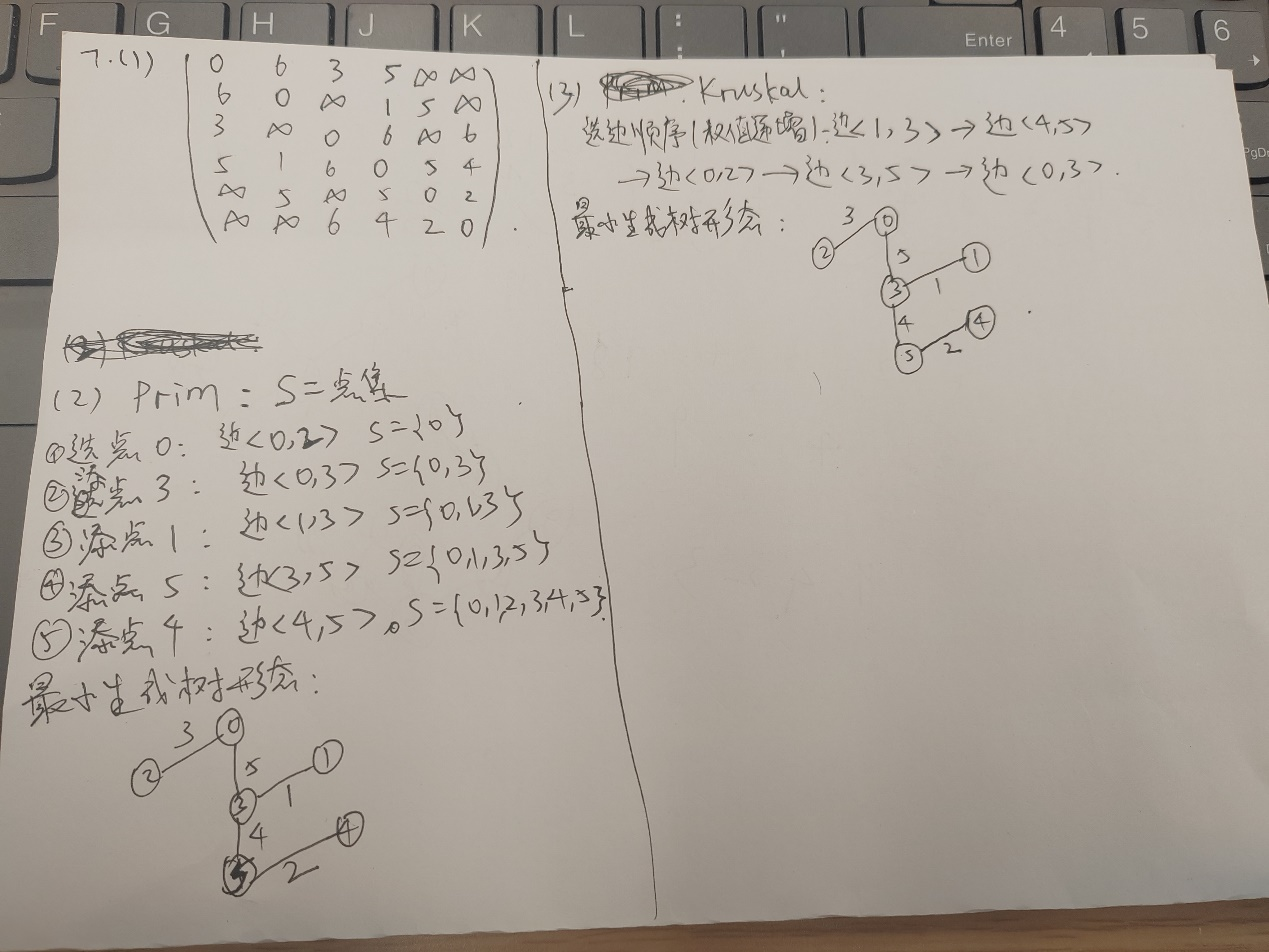 F G H J K L : ; " ' Enter 4 5 6
7.(1)
0 6 3 5 ∞ ∞
6 0 ∞ 1 5 ∞
3 ∞ 0 6 ∞ 6
5 1 6 0 5 4
∞ 5 ∞ 5 0 2
∞ ∞ 6 4 2 0 .
(2) Prim : S=点集
①选点 0: 边<0,2> S={0}
②添点 3 : 边<0,3> S={0,3}
③添点 1 : 边<1,3> S={0,1,3}
④添点 5 : 边<3,5> S={0,1,3,5}
⑤添点 4 : 边<4,5>。S={0,1,2,3,4,5}.
最小生成树形态:
0
3
2
5
1
3
1
4
4
5
2
(3) Kruskal:
选边顺序(权值递增):边<1,3>→边<4,5>
→边<0,2>→边<3,5>→边<0,3>.
最小生成树形态:
3
0
2
5
1
3
1
4
4
5
2